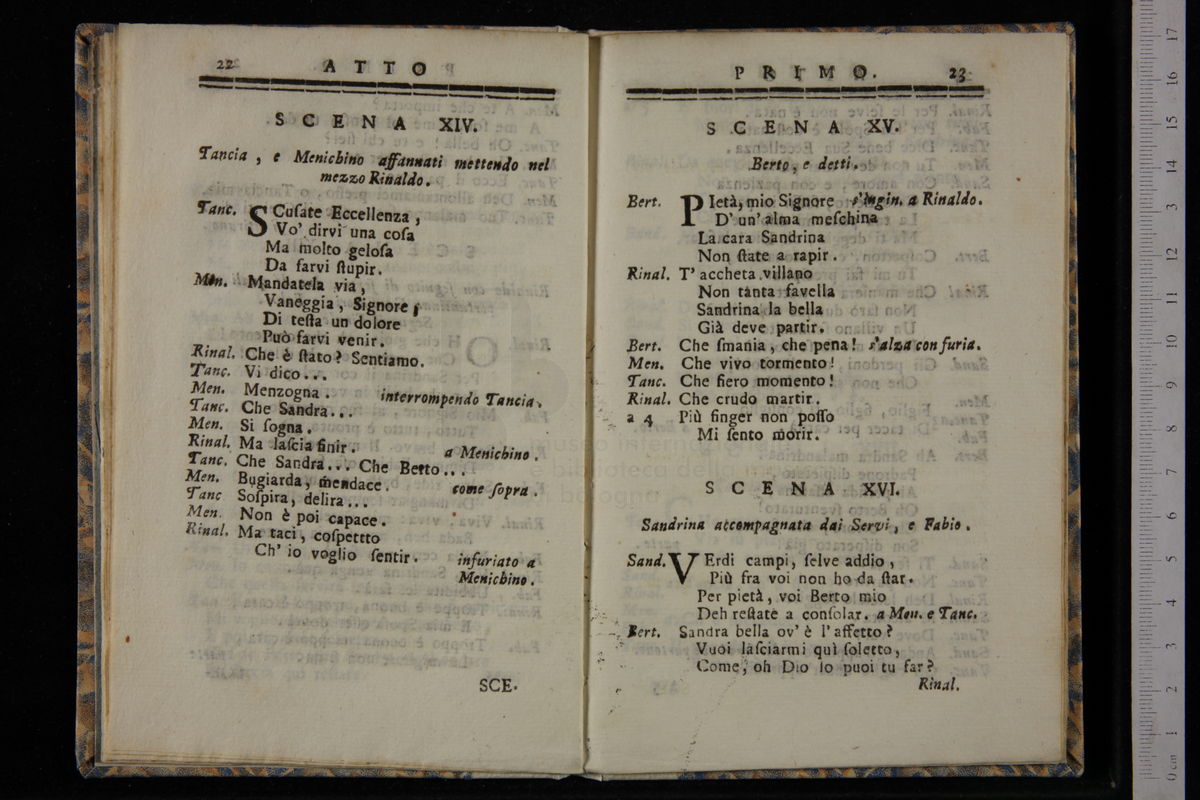 22 ATTO
SCENA XIV.
Tancia, e Menichino affannati mettendo nel
mezzo Rinaldo.
Tanc. SCusate Eccellenza,
Vo' dirvi una cosa
Ma molto gelosa
Da farvi stupir.
Men. Mandatela via,
Vaneggia, Signore;
Di testa un dolore
Può farvi venir.
Rinal. Che è stato? Sentiamo.
Tanc. Vi dico...
Men. Menzogna. interrompendo Tancia.
Tanc. Che Sandra...
Men. Si sogna.
Rinal. Ma lascia finir. a Menichino.
Tanc. Che Sandra... Che Berto...
Men. Bugiarda, mendace. come sopra.
Tanc Sospira, delira...
Men. Non è poi capace.
Rinal. Ma taci, cospettto
Ch' io voglio sentir. infuriato a
Menichino.
SCE-
PRIMO. 23
SCENA XV.
Berto, e detti.
Bert. PIetà, mio Signore s'ingin. a Rinaldo.
D' un' alma meschina
La cara Sandrina
Non state a rapir.
Rinal. T' accheta villano
Non tanta favella
Sandrina la bella
Già deve partir.
Bert. Che smania, che pena! s'alza con furia.
Men. Che vivo tormento!
Tanc. Che fiero momento!
Rinal. Che crudo martir.
a 4 Più finger non posso
Mi sento morir.
SCENA XVI.
Sandrina accompagnata dai Servi, e Fabio.
Sand. VErdi campi, selve addio,
Più fra voi non ho da star.
Per pietà, voi Berto mio
Deh restate a consolar. a Men. e Tanc.
Bert. Sandra bella ov' è l' affetto?
Vuoi lasciarmi quì soletto,
Come, oh Dio lo puoi tu far?
Rinal.